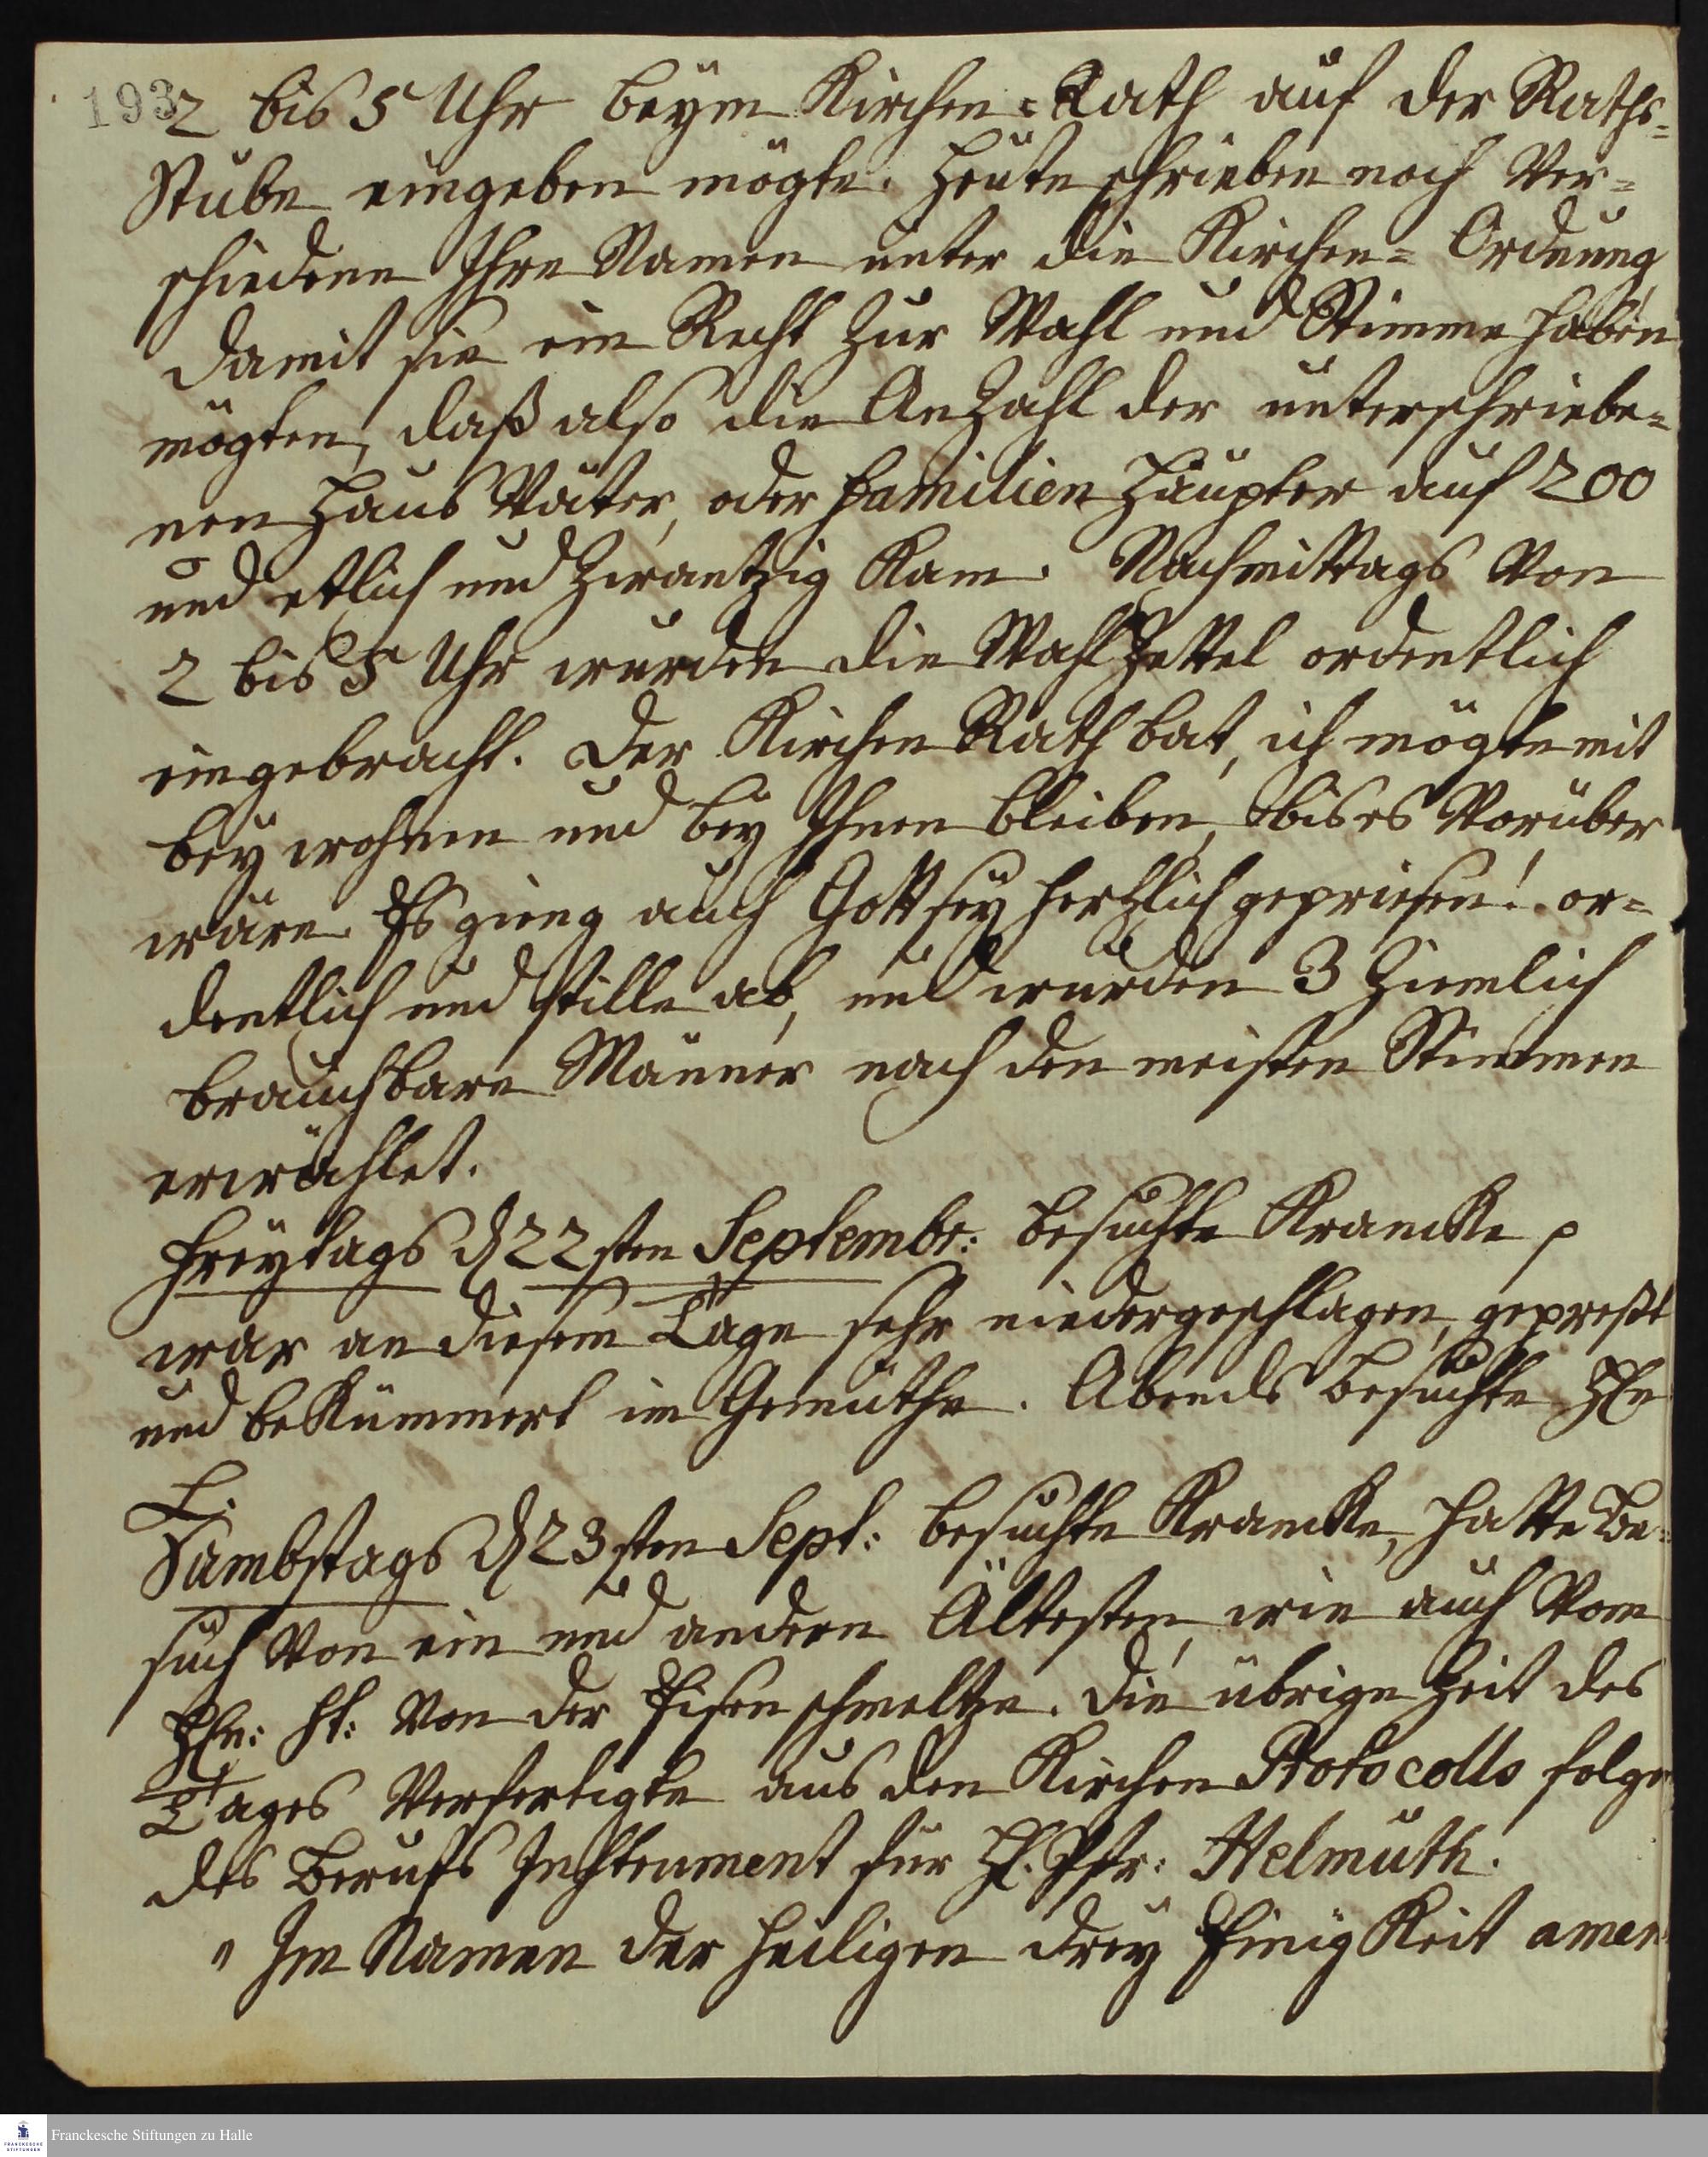 193
2 bis 5 Uhr beym Kirchen=Rath auf der Raths=
Stube eingeben mögte. Heute schrieben noch Ver=
schiedene Ihre Namen unter die Kirchen=Ordnung
damit sie ein Recht zur Wahl und Stimme haben
mögten, daß also die AnZahl der unterschriebe=
nen Haus Väter, oder Familien Häupter auf 200
und etlich und Zwantzig Kam. Nachmittags Von
2 bis 5 Uhr wurden die Wahl Zettel ordentlich
eingebracht. Der Kirchen Rath bat, ich mögte mit
bey wohnen und bey Ihnen bleiben, bis es Vorüber
wäre. Es gieng auch Gott sey hertzlich gepriesen! or=
dentlich und stille ab, und wurden 3 Ziemlich
brauchbare Männer nach den meisten Stimmen
erwählet.
Freytags d 22sten Septembr: besuchte Krancke p
war an diesem Tage sehr niedergeschlagen, gepreßt
und beKümmert im Gemüthe. Abends besuchte HEn
L.
Sambstags d 23sten Sept: besuchte Krancke, hatte Be=
such Von ein und andern Ältesten, wie auch Vom
HEn: St: Von der Eisenschmeltze. Die übrige Zeit des
Tages Verfertigte aus den Kirchen Protocolls folgen
des Berufs Instrument für H. Pfr: Helmuth.
" Im Namen der Heiligen drey EinigKeit amen
Franckesche Stiftungen zu Halle